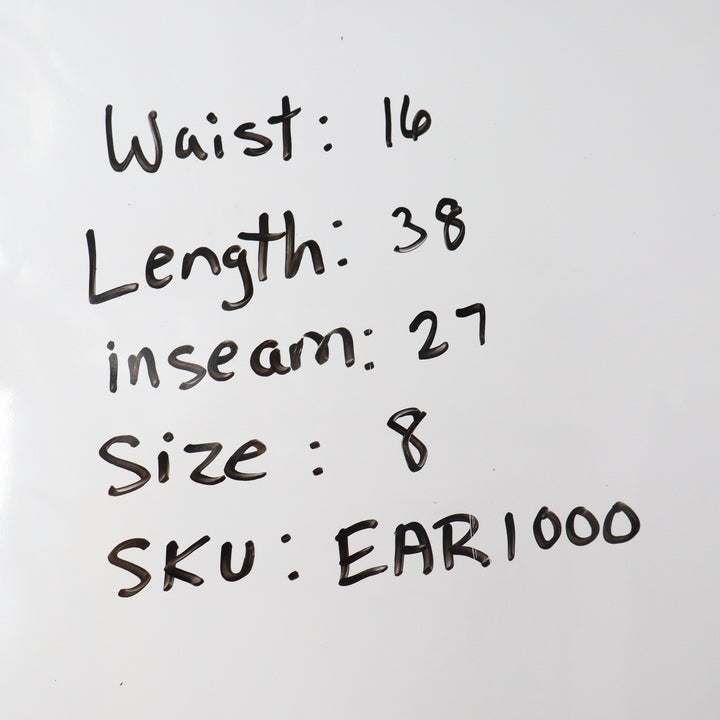 Waist: 16
Length: 38
inseam: 27
Size: 8
SKU: EAR1000